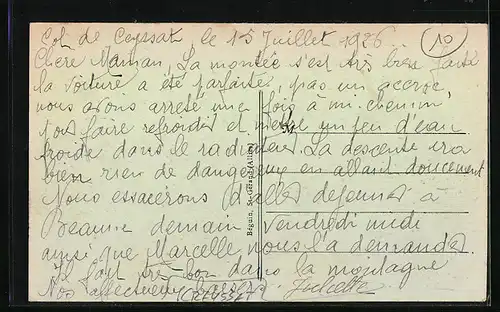 Col de Ceyssat le 15 Juillet 1926 10
Chere Maman, La montée s'est très bien faite
la voiture a été parfaite, pas un accroc
nous avons arreté une fois à mi-chemin,
faire refroidir et mettre un peu d'eau
froide dans le radiateur. La descente ira
bien rien de dangereux en allant doucement
Nous essaierons d'aller dejeuner à
Beaune demain vendredi midi
ainsi que Marcelle nous l'a demandé.
Il fait très bon dans la montagne
Nos affectueux baisers Juliette
(CREUSSET
Béguin, St-Gérand (Allier)